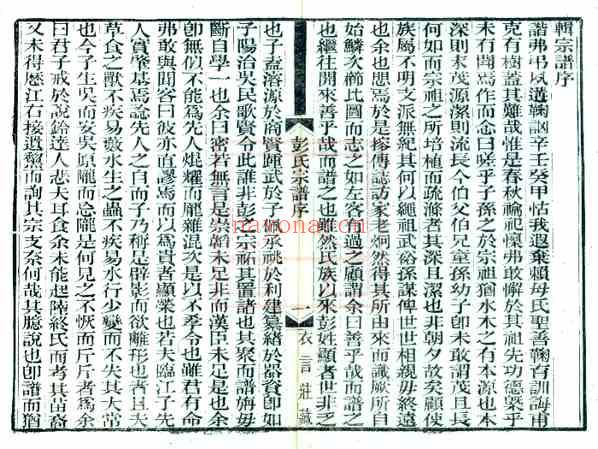 輯宗譜序
諧弗弔夙遘鞠訩辛壬癸甲怙我遐棄賴母氏聖善鞠育訓誨甫
克有樹蓋其難哉惟是春秋禴祀懷弗敢懈於其祖先功德槩乎
未有聞焉作而念曰嗟乎子孫之於宗祖猶水木之有本源也本
深則末茂源潔則流長今伯父伯兄童孫幼子卽未敢謂茂且長
何如而宗祖之所培植而疏滌者其深且潔也非朝夕故矣顧使
族屬不明支派無紀其何以繩祖武裕孫謀俾世世相親毋終遠
也余也思焉於是搜傳誌訪家老炯然得其所由來而識厥所自
始鱗次氏圖而志之如左客有過之顧謂余曰善乎哉而譜之
也繼往開來善乎哉而譜之也雖然氏族以來彭姓顯者世非乏
彭氏宗譜序
一
衣言莊藏
也子孟溶源於商賢武於子佩承祧於利建纂緒於賓卽如
子陽治吳民歌賢令此誰非彭之宗祏其置諸也其聚而譜毋
斷自學一也余曰密若無言是崇韜未足非而漢臣未足是也余
卽無似不能爲先人焜燿而龐雜混次是以不孝令也雖君有余
弗敢與聞客曰彼亦直謬焉而以爲貴者顯榮也若夫臨江子先
人實肇基焉念先人之自而子乃稱是辟影而欲離形也者且夫
草食之獸不疾易藪水生之蟲不疾易水行少變而不失其大常
也今子生吳而安吳原隴而念隴是何見之不恢而斤斤者爲余
曰君子戒於說鈴達人悲夫耳食余未能起陸終氏而考其苗裔
又未得歷江右接遺黎而詢其宗支奈何哉其臆說也卽譜而猶